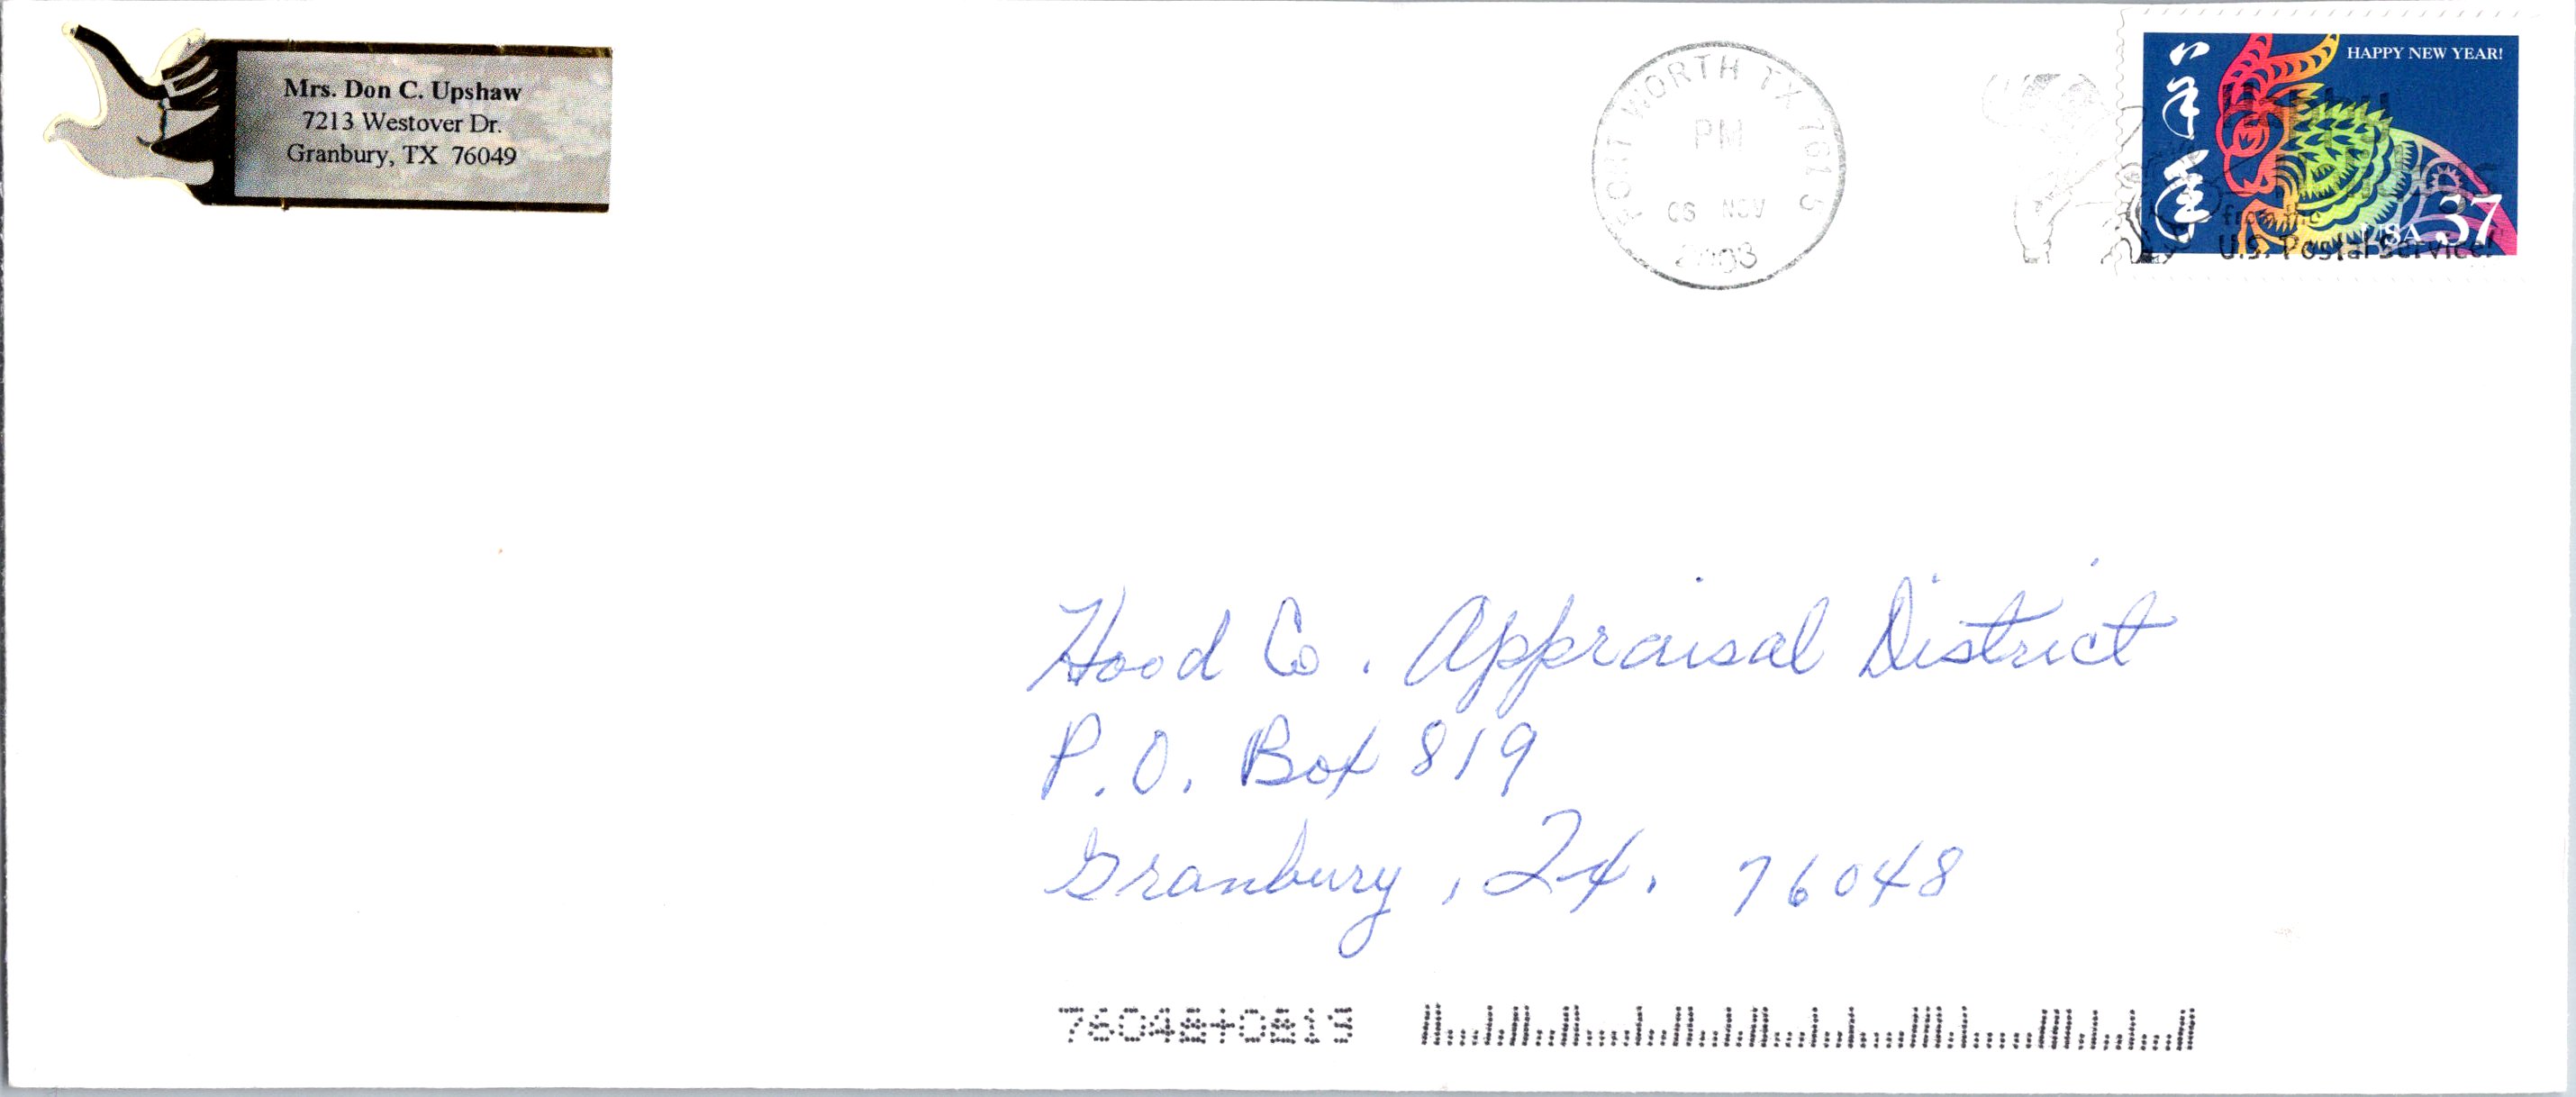 Mrs. Don C. Upshaw
7213 Westover Dr.
Granbury, TX 76049
FORT WORTH TX 761 5
PM
06 NOV
2003
HAPPY NEW YEAR!
羊年
USA 37
Happy
Holidays
from the
U.S. Postal Service!
Hood Co. Appraisal District
P.O. Box 819
Granbury, Tx. 76048
76048+0819